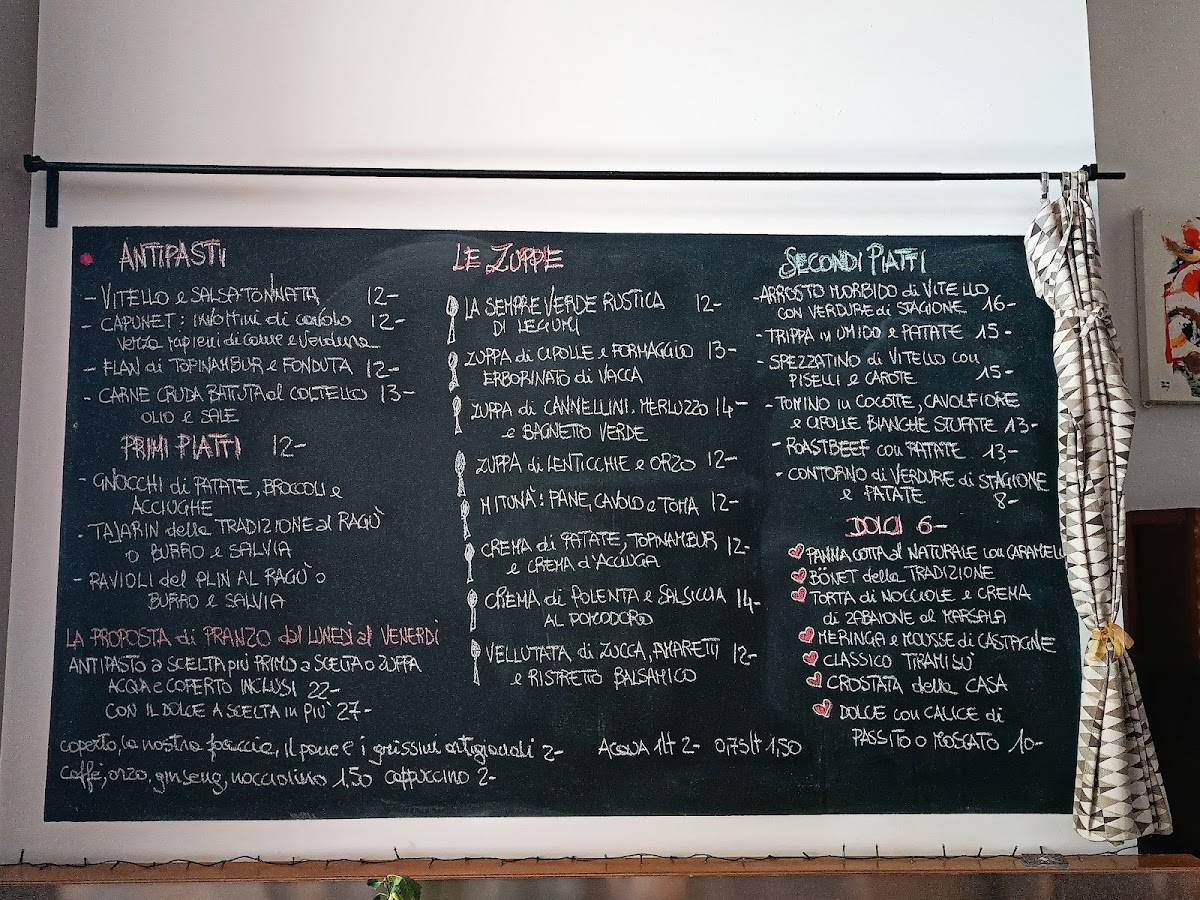 ANTIPASTI
- VITELLO e SALSA TONNATA 12-
- CAPUNET: INVOLTINI di CAVOLO 12-
VERZA RIPIENI di CARNE e VERDURA
- FLAN di TOPINAMBUR e FONDUTA 12-
- CARNE CRUDA BATTUTA al COLTELLO 13-
OLIO e SALE
PRIMI PIATTI 12-
- GNOCCHI di PATATE, BROCCOLI e
ACCIUGHE
- TAJARIN della TRADIZIONE al RAGÙ
O BURRO e SALVIA
- RAVIOLI del PLIN AL RAGÙ O
BURRO e SALVIA
LA PROPOSTA di PRANZO dal LUNEDÌ al VENERDÌ
ANTIPASTO a SCELTA più PRIMO a SCELTA o ZUPPA
ACQUA e COPERTO INCLUSI 22-
CON IL DOLCE A SCELTA in PIÙ 27-
LE ZUPPE
LA SEMPRE VERDE RUSTICA 12-
DI LEGUMI
ZUPPA di CIPOLLE e FORMAGGIO 13-
ERBORINATO di VACCA
ZUPPA di CANNELLINI, MERLUZZO 14-
e BAGNETTO VERDE
ZUPPA di LENTICCHIE e ORZO 12-
MITUNÀ: PANE, CAVOLO e TOMA 12-
CREMA di PATATE, TOPINAMBUR 12-
e CREMA d'ACCIUGA
CREMA di POLENTA e SALSICCIA 14-
AL POMODORO
VELLUTATA di ZUCCA, AMARETTI 12-
e RISTRETTO BALSAMICO
SECONDI PIATTI
- ARROSTO MORBIDO di VITELLO
CON VERDURE di STAGIONE 16-
- TRIPPA in UMIDO e PATATE 15-
- SPEZZATINO di VITELLO con
PISELLI e CAROTE 15-
- TOMINO in COCOTTE, CAVOLFIORE
e CIPOLLE BIANCHE STUFATE 13-
- ROASTBEEF con PATATE 13-
- CONTORNO di VERDURE di STAGIONE
e PATATE 8-
DOLCI 6-
PANNA COTTA al NATURALE con CARAMELL
BÖNET della TRADIZIONE
TORTA di NOCCIOLE e CREMA
di ZABAIONE al MARSALA
MERINGA e MOUSSE di CASTAGNE
CLASSICO TIRAMISÙ
CROSTATA della CASA
DOLCE con CALICE di
PASSITO O MOSCATO 10-
coperto, la nostra focaccia, il pane e i grissini artigianali 2- ACQUA 1lt 2- 0,75lt 1,50
caffè, orzo, ginseng, nocciolino 1,50 cappuccino 2-